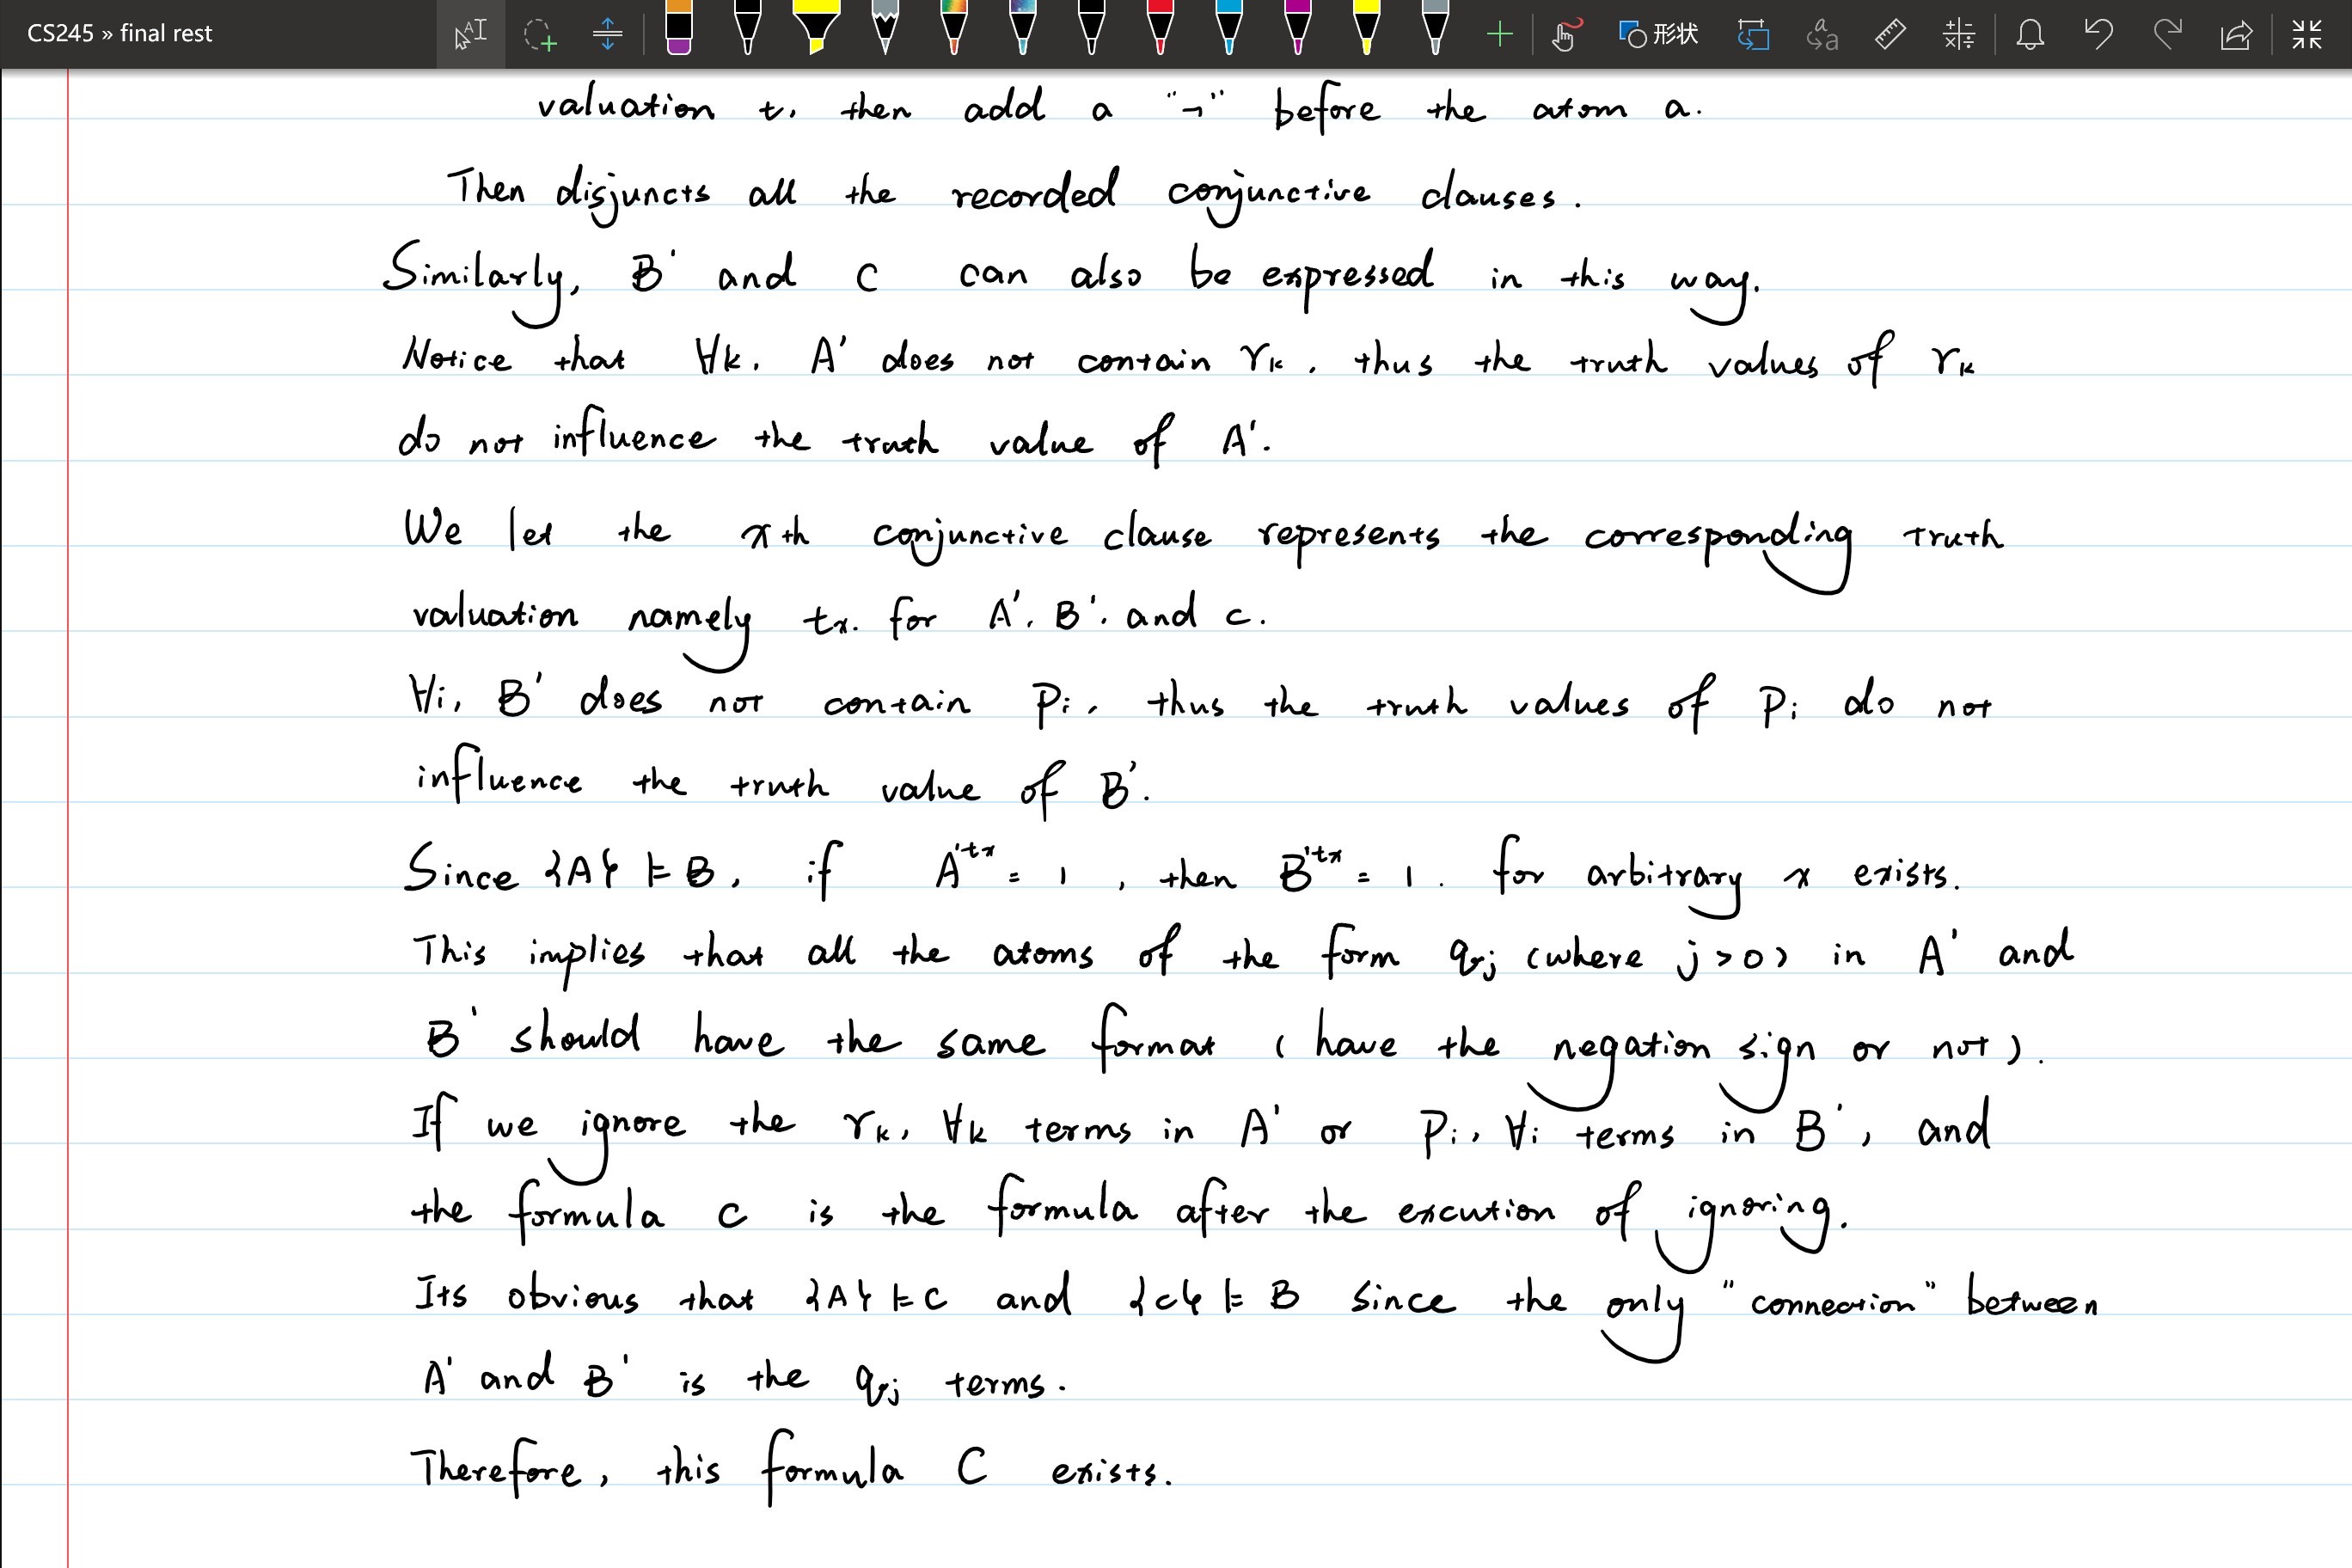 CS245 » final rest
形状
valuation t, then add a "¬" before the atom a.
Then disjuncts all the recorded conjunctive clauses.
Similarly, B' and C can also be expressed in this way.
Notice that ∀k, A' does not contain rₖ, thus the truth values of rₖ
do not influence the truth value of A'.
We let the xth conjunctive clause represents the corresponding truth
valuation namely tₓ. for A', B', and C.
∀i, B' does not contain Pᵢ, thus the truth values of Pᵢ do not
influence the truth value of B'.
Since {A} ⊨ B, if A'^tₓ = 1, then B'^tₓ = 1. for arbitrary x exists.
This implies that all the atoms of the form qⱼ (where j>0) in A' and
B' should have the same format (have the negation sign or not).
If we ignore the rₖ, ∀k terms in A' or Pᵢ, ∀i terms in B', and
the formula C is the formula after the excution of ignoring.
Its obvious that {A} ⊨ C and {C} ⊨ B since the only "connection" between
A' and B' is the qⱼ terms.
Therefore, this formula C exists.